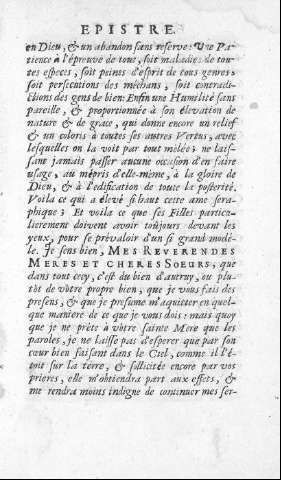 EPISTRE.
en Dieu, & un abandon sans reserve: Une Pa-
tience à l'épreuve de tous, soit maladies de tou-
tes especes, soit peines d'esprit de tous genres,
soit persecutions des méchans, soit contradi-
ctions des gens de bien: Enfin une Humilité sans
pareille, & proportionnée à son élevation de
nature & de grace, qui donne encore un relief
& un coloris à toutes ses autres Vertus, avec
lesquelles on la voit par tout mêlée; ne lais-
sant jamais passer aucune occasion d'en faire
usage, au mépris d'elle-même, à la gloire de
Dieu, & à l'edification de toute la posterité.
Voila ce qui a élevé si haut cette ame sera-
phique; Et voila ce que ses Filles particu-
lierement doivent avoir toûjours devant les
yeux, pour se prévaloir d'un si grand modé-
le. Je sens bien, MES REVERENDES
MERES ET CHERES SOEURS, que
dans tout cecy, c'est du bien d'autruy, ou plu-
tôt de vôtre propre bien, que je vous fais des
presens, & que je presume m'aquitter en quel-
que maniere de ce que je vous dois: mais quoy
que je ne prête à vôtre sainte Mere que les
paroles, je ne laisse pas d'esperer que par son
cœur bien faisant dans le Ciel, comme il l'é-
toit sur la terre, & sollicitée encore par vos
prieres, elle m'obtiendra part aux effets, &
me rendra moins indigne de continuer mes ser-